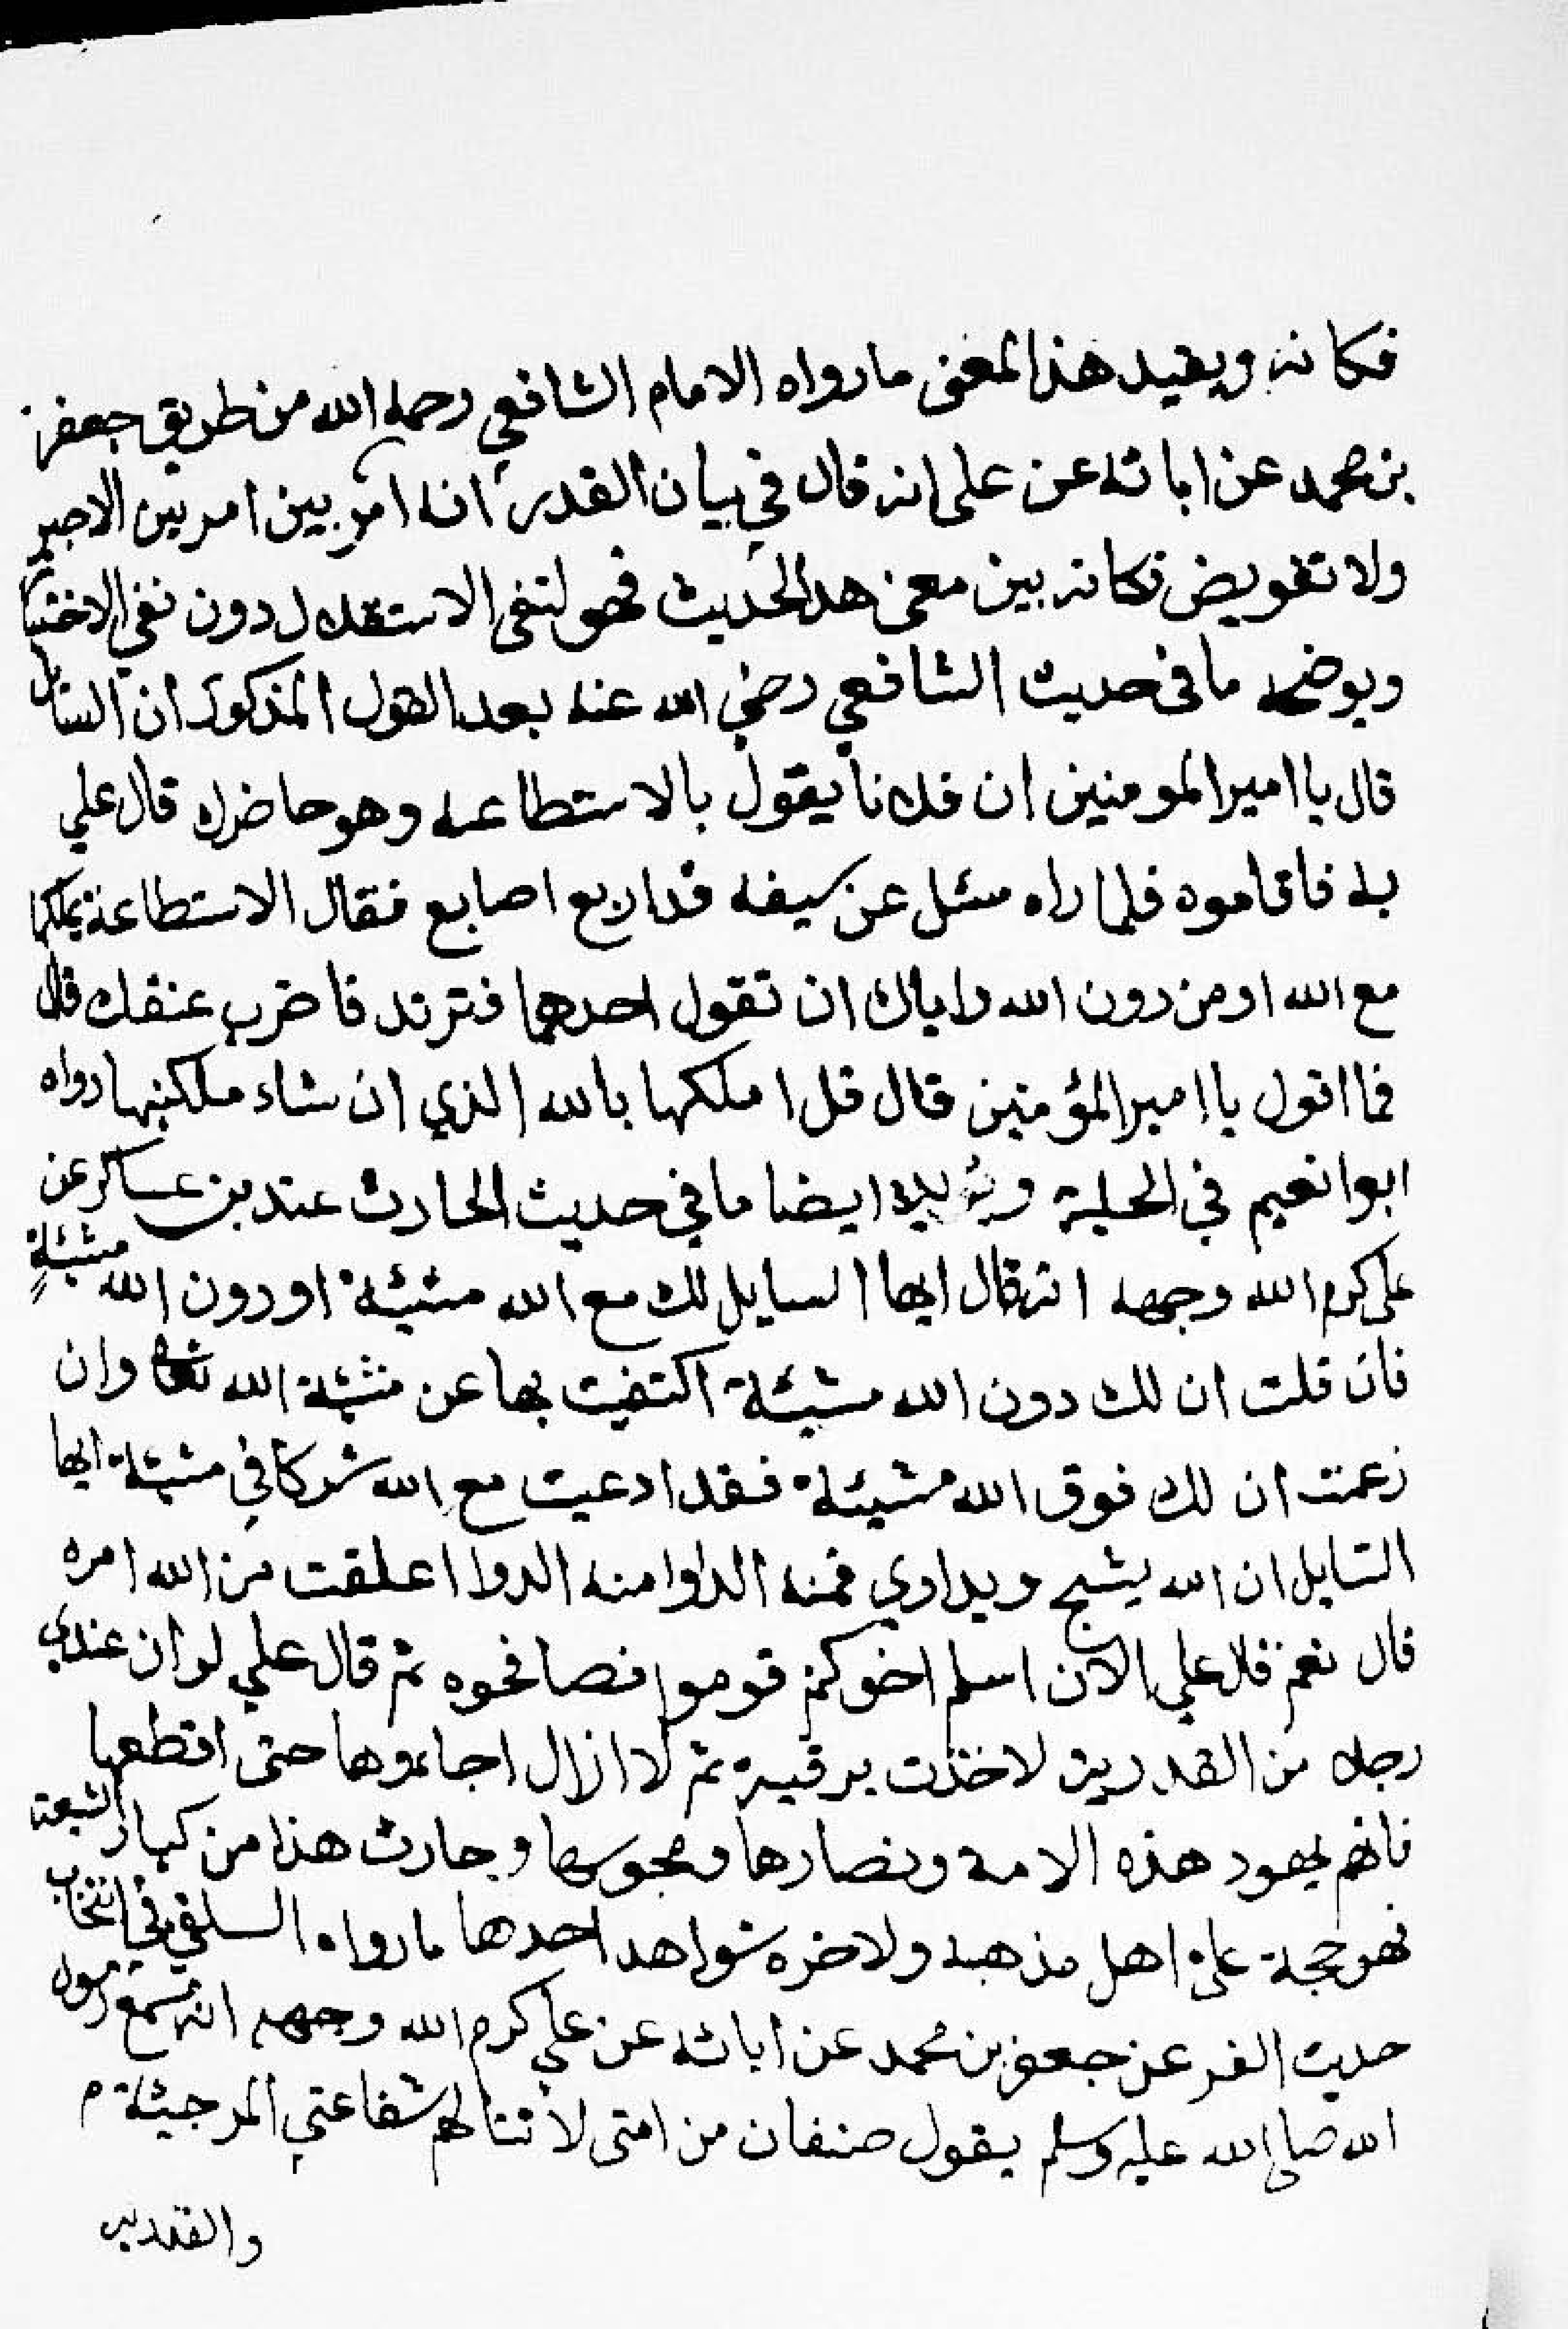 فكانه ويفيد هذا المعنى مارواه الامام الشافعي رحمه الله من طريق جعفر
بن محمد عن ابائه عن على انه قال في بيان القدر انه امر بين امرين لاجبر
ولا تفويض فكانه بين معنى هذا الحديث فهو لنفى الاستقلال دون نفي الاختيا
ويوضحه مافى حديث الشافعي رضي الله عنه بعد القول المذكور ان السائل
قال يا امير المومنين ان فلانا يقول بالاستطاعه وهو حاضرك قال علي
به فاقاموه فلما راه سل عن سيفه قدر اربع اصابع فقال الاستطاعة تملكها
مع الله او من دون الله واياك ان تقول احدهما فترتد فاضرب عنقك قال
فما اقول يا امير المؤمنين قال قل املكها بالله الذي ان شاء ملكنيها رواه
ابوا نعيم في الحلية ويؤيده ايضا مافي حديث الحارث عند بن عساكر عن
على كرم الله وجهه انه قال ايها السايل لك مع الله مشيئة او دون الله مشيئة
فان قلت ان لك دون الله مشيئة اكتفيت بها عن مشيئة الله تعالى وان
زعمت ان لك فوق الله مشيئة فقد ادعيت مع الله شركا في مشيئة ايها
السايل ان الله يشج ويداوي فمنه الداوا منه الدوا اعلقت من الله امره
قال نعم قال علي الان اسلم اخوكم قوموا فصافحوه ثم قال علي لو ان عندي
رجلا من القدرية لاخذت برقبته ثم لا ازال اجاءوها حتى اقطعها
فانهم يهود هذه الامة ونصارها ومجوسها وحارث هذا من كبار الشيعة
فهو حجة على اهل مذهبه ولاخره شواهد احدها مارواه السلفي في انتخاب
حديث الفر عن جعفر بن محمد عن ابائه عن علي كرم الله وجهه انه سمع رسول
الله صلى الله عليه وسلم يقول صنفان من امتى لا تنالهم شفاعتي المرجيئة م
والقدريه